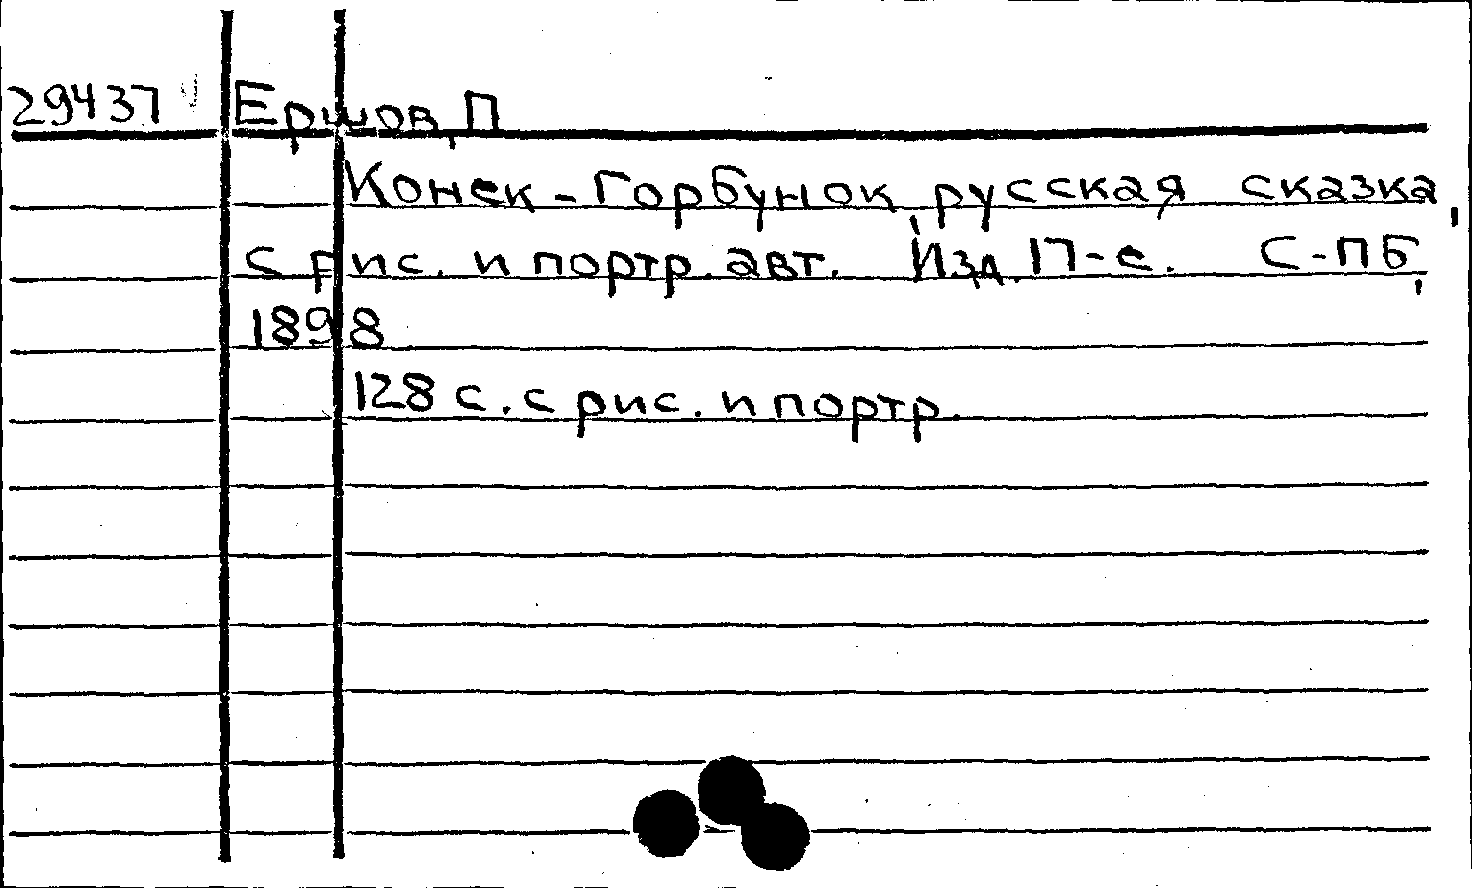 29437 Ершов, П
Конек-Горбунок, русская сказка,
с рис. и портр. авт. Изд. 17-е. С-ПБ,
1898
128 с. с рис. и портр.